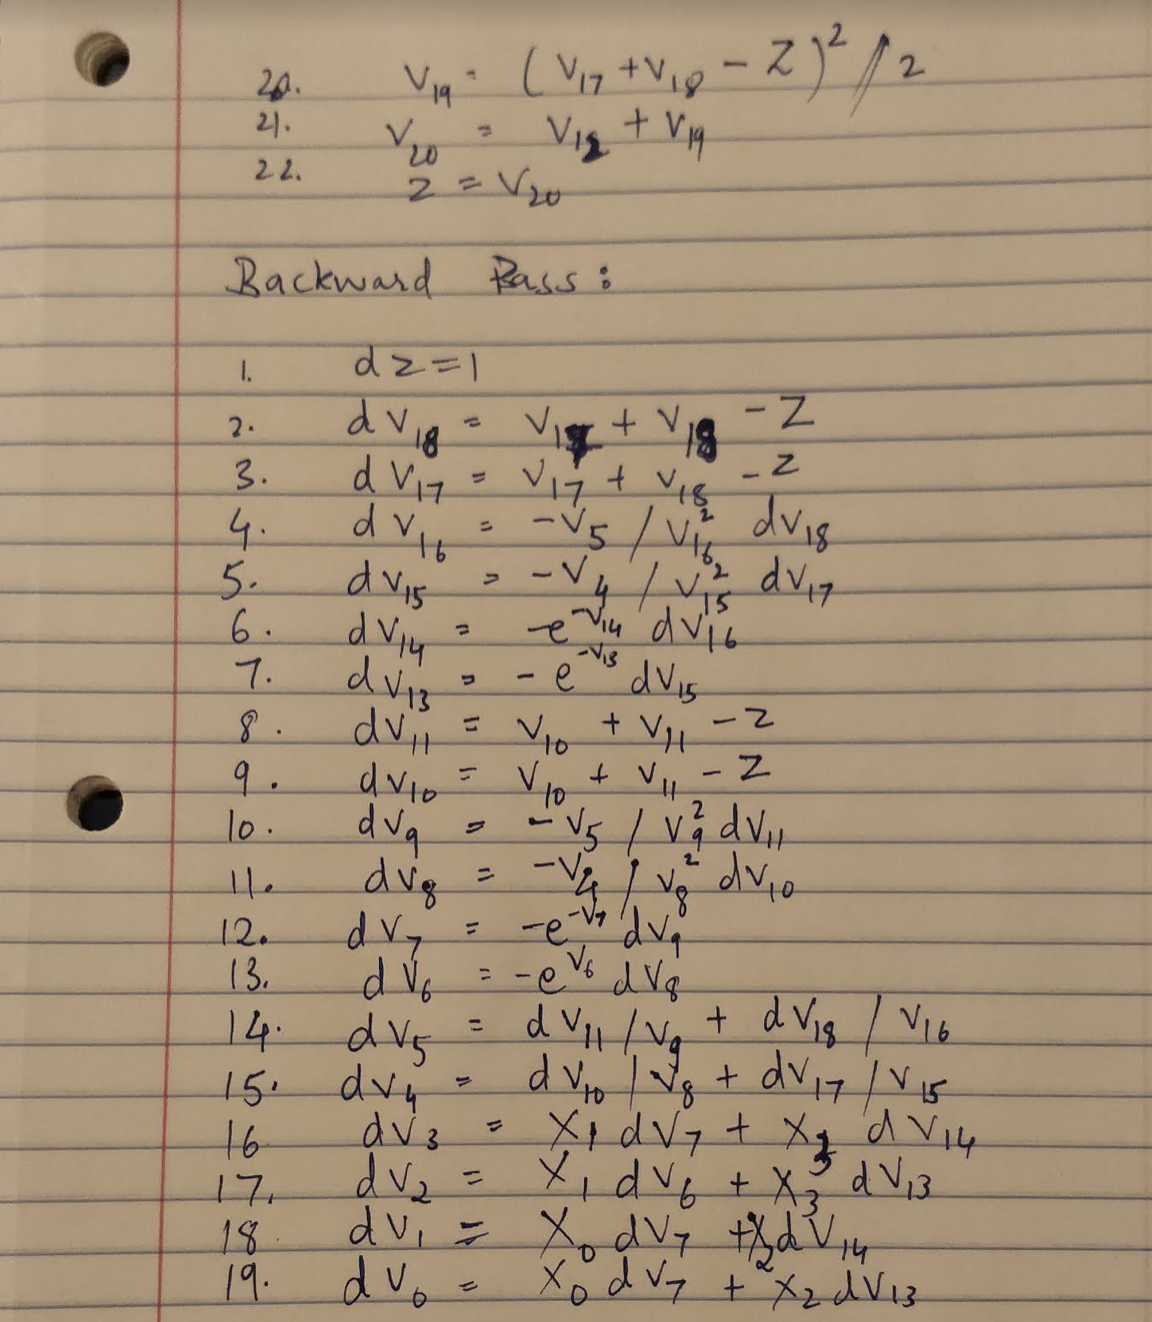 20. V₁₉ = (V₁₇ + V₁₈ - Z)² / 2
21. V₂₀ = V₁₂ + V₁₉
22. Z = V₂₀
Backward Pass:
1. dz = 1
2. dV₁₈ = V₁₇ + V₁₈ - Z
3. dV₁₇ = V₁₇ + V₁₈ - Z
4. dV₁₆ = -V₅ / V₁₆² dV₁₈
5. dV₁₅ = -V₄ / V₁₅² dV₁₇
6. dV₁₄ = -e^-V₁₄ dV₁₆
7. dV₁₃ = -e^-V₁₃ dV₁₅
8. dV₁₁ = V₁₀ + V₁₁ - Z
9. dV₁₀ = V₁₀ + V₁₁ - Z
10. dV₉ = -V₅ / V₉² dV₁₁
11. dV₈ = -V₄ / V₈² dV₁₀
12. dV₇ = -e^-V₇ dV₉
13. dV₆ = -e^V₆ dV₈
14. dV₅ = dV₁₁ / V₉ + dV₁₈ / V₁₆
15. dV₄ = dV₁₀ / V₈ + dV₁₇ / V₁₅
16 dV₃ = X₁ dV₇ + X₃ dV₁₄
17. dV₂ = X₁ dV₆ + X₃ dV₁₃
18 dV₁ = X₀ dV₇ + X₂ dV₁₄
19. dV₀ = X₀ dV₇ + X₂ dV₁₃